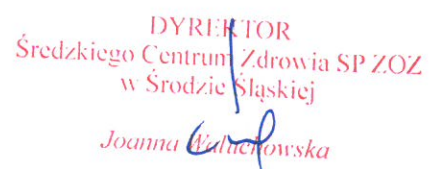 DYREKTOR
Średzkiego Centrum Zdrowia SP ZOZ
w Środzie Śląskiej
Joanna